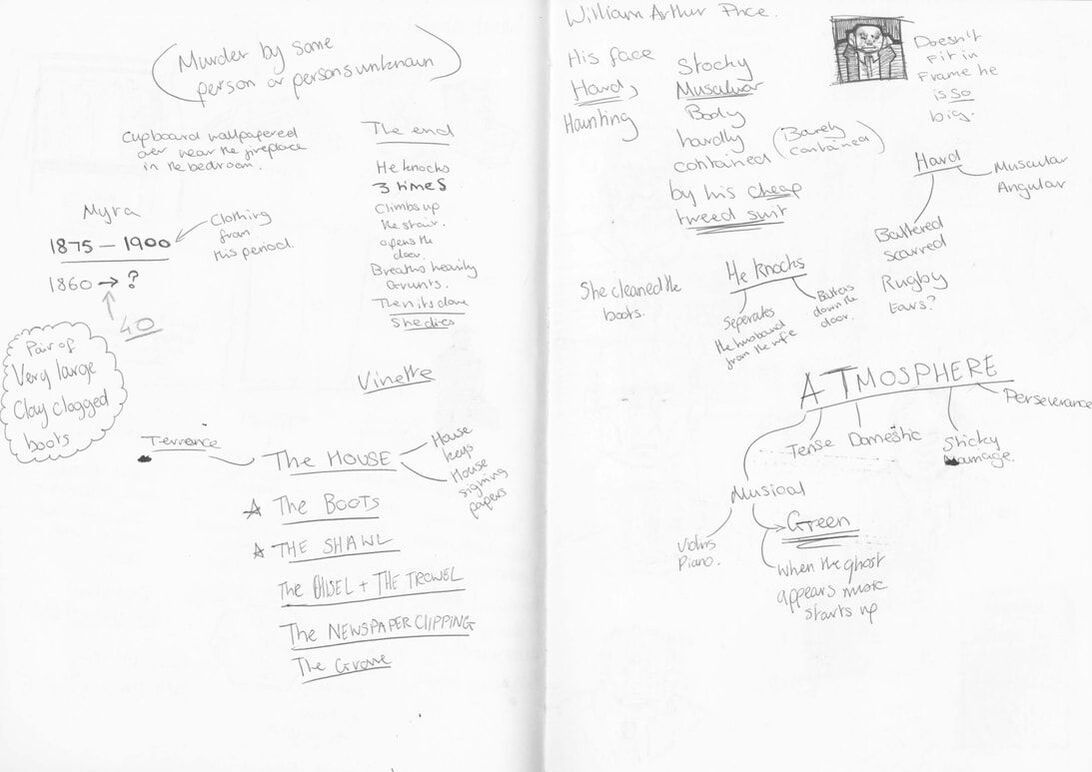 Murder by some
person or persons unknown
Cupboard wallpapered
over near the fireplace
in the bedroom.
The end
He knocks
3 times
Climbs up
the stair.
opens the
door.
Breaths heavily
Grunts.
Then its done
She dies
Myra
1875 – 1900
Clothing
from
this period.
1860 → ?
40
Pair of
Very large
Clay clogged
boots
Vinette
Terrance
The HOUSE
House
keys
House
signing
papers
The BOOTS
THE SHAWL
The CHISEL + THE TROWEL
The NEWSPAPER CLIPPING
The Grave
William Arthur Price.
His face
Hard,
Haunting
Stocky
Muscular
Body
hardly
contained
(Barely
contained)
by his cheap
tweed suit
Doesn't
Fit in
Frame he
is so
big.
Hard
Muscular
Angular
Battered
scarred
Rugby
Ears?
She cleaned the
boots.
He knocks
Seperates
the husband
from the wife
Batters
down the
door.
ATMOSPHERE
Perseverance
Tense
Domestic
Sticky
Damage.
Musical
Violins
Piano.
Green
When the ghost
appears music
starts up